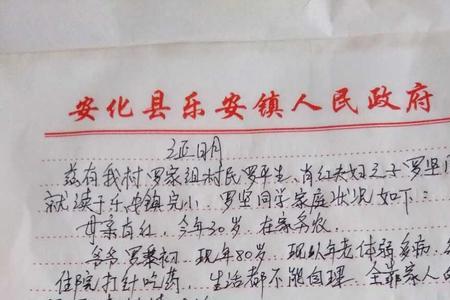 安化县乐安镇人民政府
证明
兹有我村罗家组村民罗平生、肖红夫妇之子罗坚
就读于乐安镇完小。罗坚同学家庭状况如下：
母亲肖红，今年30岁，在家务农，
爷爷罗秉初，现年80岁，现以年老体弱多病，
住院打针吃药，生活都不能自理，全靠家人的